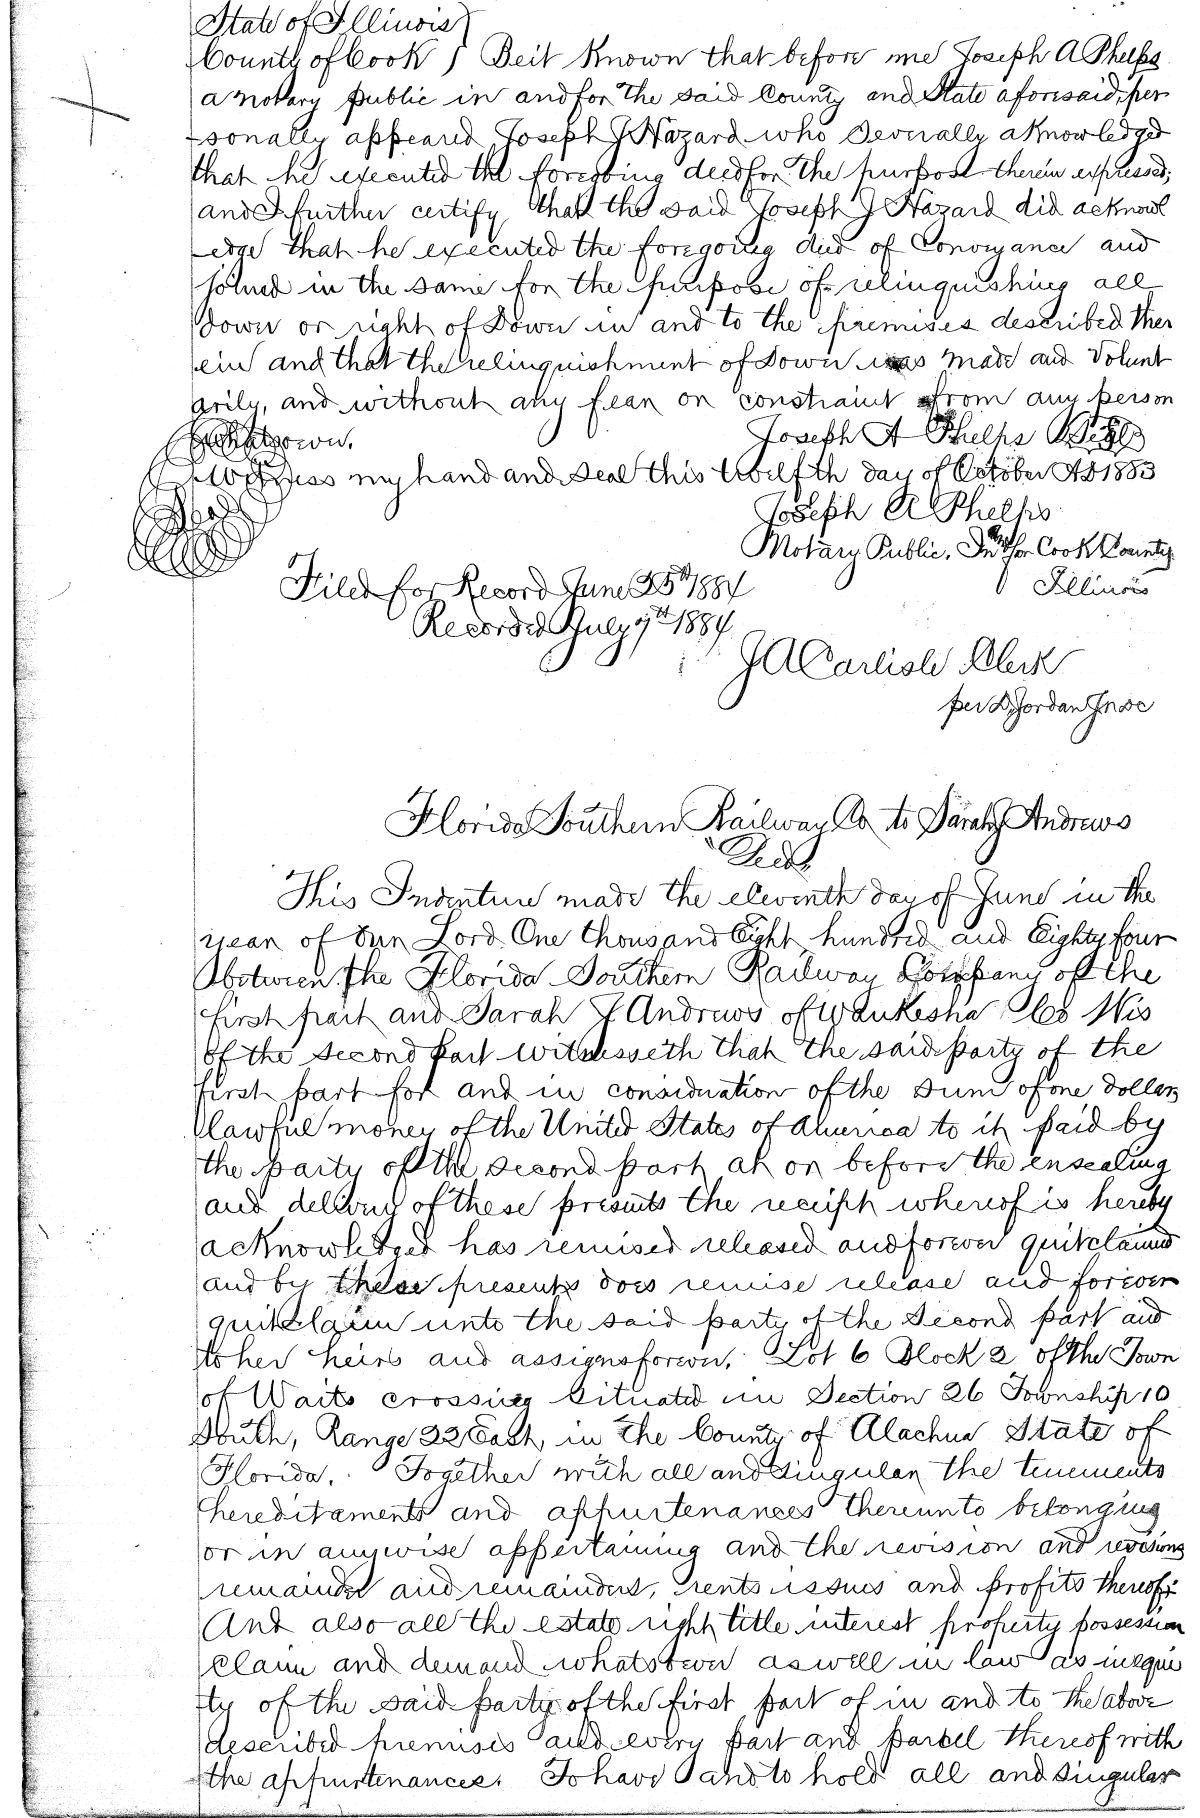 State of Illinois }
County of Cook } Beit Known that before me Joseph A Phelps
a notary public in and for the said County and State aforesaid, per
sonally appeared Joseph J Hazard who Severally aknowledged
that he executed the foregoing deed for the purpose therein expressed;
and I further certify that the said Joseph J Hazard did acknowl
edge that he executed the foregoing deed of Conveyance and
joined in the same for the purpose of relinquishing all
dower or right of Dower in and to the premises described ther
ein and that the relinquishment of Dower was made and Volunt
arily, and without any fear or constraint from any person
whatsoever. Joseph A Phelps
Witness my hand and seal this twelfth day of October AD 1883
Seal Joseph A Phelps
Notary Public, In & for Cook County
Illinois
Filed for Record June 25th 1884
Recorded July 7th 1884
J A Carlisle Clerk
per D. Jordan
Florida Southern Railway Co to Sarah J Andrews
Deed,
This Indenture made the eleventh day of June in the
year of Our Lord One thousand Eight hundred and Eighty four
between the Florida Southern Railway Company of the
first part and Sarah J Andrews of Waukesha Co Wis
of the second part witnesseth that the said party of the
first part for and in consideration of the sum of one dollars
lawful money of the United States of America to it paid by
the party of the second part at or before the ensealing
and delivery of these presents the receipt whereof is hereby
acknowledged has remised released and forever quitclaimed
and by these presents does remise release and forever
quitclaim unto the said party of the Second part and
to her heirs and assigns forever, Lot 6 Block 2 of the Town
of Waits crossing situated in Section 26 Township 10
South, Range 22 East, in the County of Alachua State of
Florida. Together with all and singular the tenements
hereditaments and appurtenances thereunto belonging
or in anywise appertaining and the revision and revisions
remainder and remainders, rents issues and profits thereof:
And also all the estate right title interest property possession
claim and demand whatsoever as well in law as in equi
ty of the said party of the first part of in and to the above
described premises and every part and parcel thereof with
the appurtenances. To have and to hold all and singular